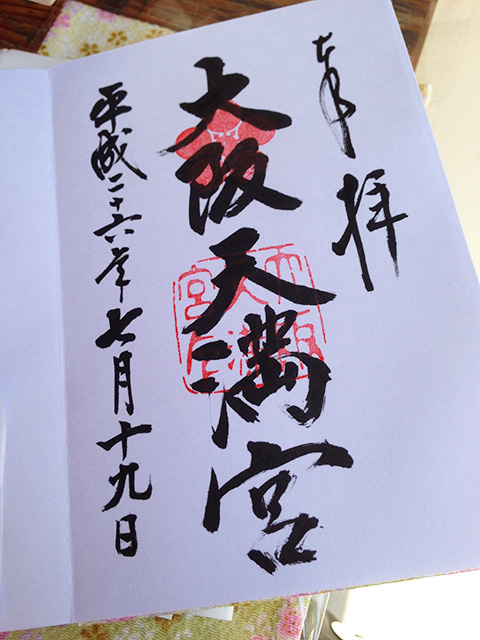 奉拝
大阪天満宮
平成二十六年七月十九日